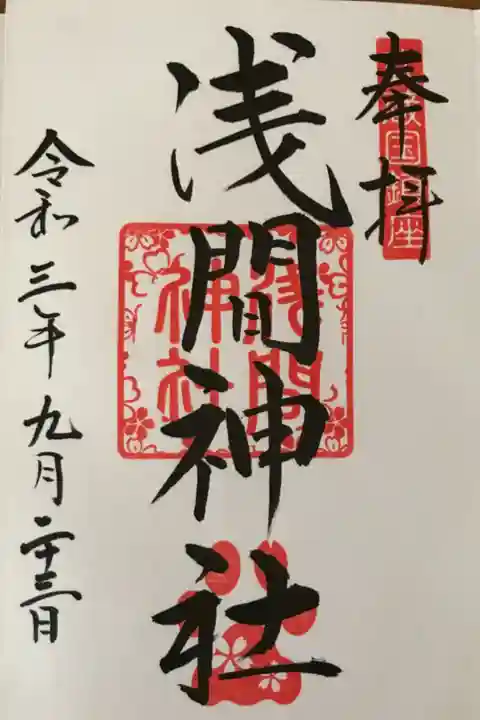 奉拝
浅間神社
浅間
神社
令和三年九月二十三日